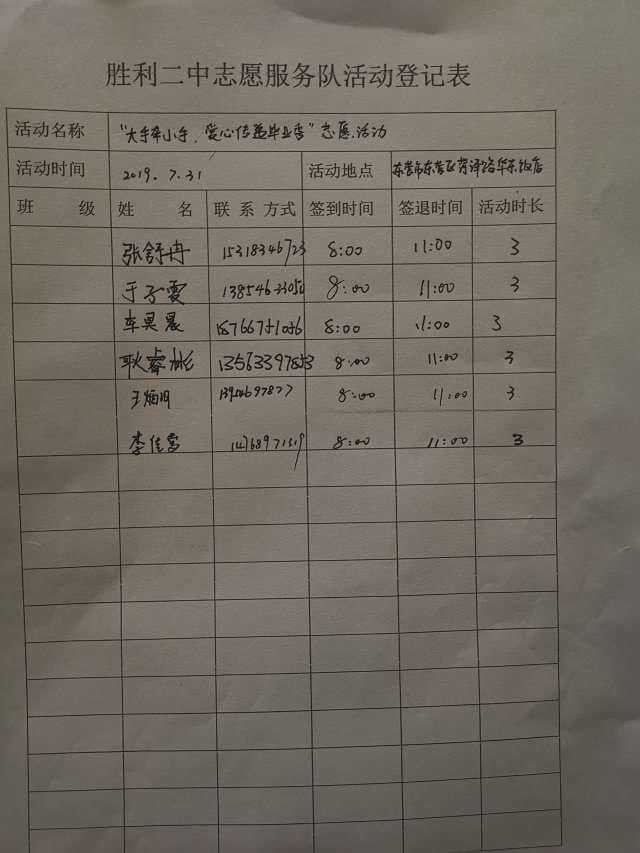 胜利二中志愿服务队活动登记表
活动名称 "大手牵小手，爱心传递毕业季"志愿活动
活动时间 2019.7.31 活动地点 东营市东营区菏泽路华东饭店
班 级 姓 名 联 系 方式 签到时间 签退时间 活动时长
张舒冉 15318346723 8:00 11:00 3
于子雯 8:00 11:00 3
车昊晨 15766751056 8:00 11:00 3
耿睿彬 8:00 11:00 3
王炳月 13954697877 8:00 11:00 3
李佳 8:00 11:00 3